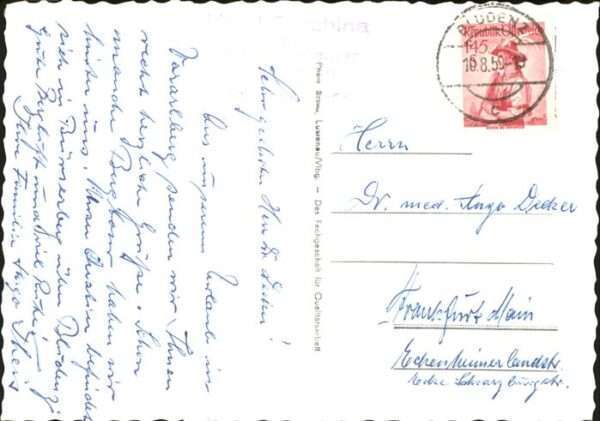 Sehr geehrter Herr Dr. Dicker!
Aus unserem Urlaub in
Vorarlberg senden wir Ihnen
recht herzliche Grüße. Schon
manche Bergtour haben wir
hinter uns. Unser Quartier befindet
sich in Bürserberg über Bludenz.
Gute Bergluft und viel Ruhe!
Ihre Familie Hugo
Photo Branz, Lustenau/Vlbg. — Das Fachgeschäft für Qualitätsarbeit
BLUDENZ
10.8.59
c
Republik Österreich
1.45
Herrn
Dr. med. Hugo Dicker
Frankfurt Main
Eckenheimerlandstr.
Ecke Schwarzburgstr.